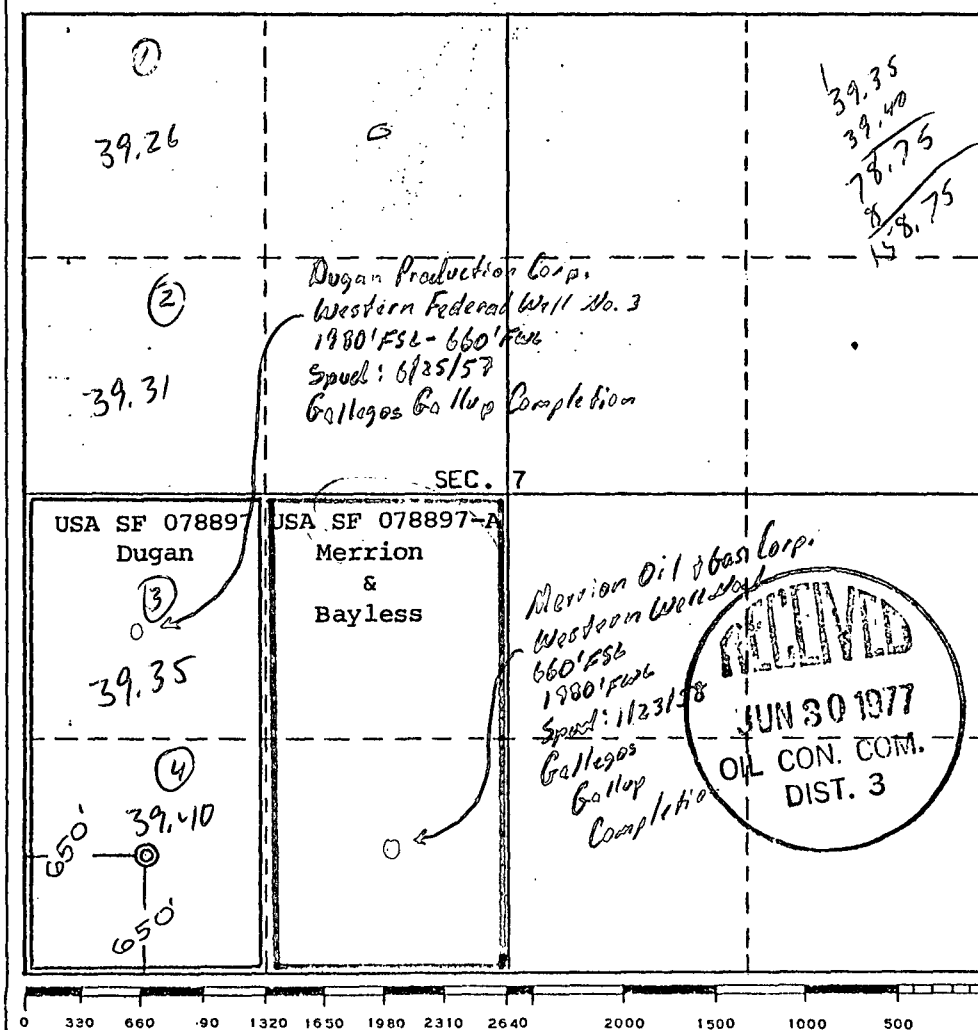 1
39.26
39.35
39.40
78.75
8
158.75
2
39.31
Dugan Production Corp.
Western Federal Well No. 3
1980' FSL - 660' FWL
Spud: 6/25/57
Gallegos Gallup Completion
SEC. 7
USA SF 078897
Dugan
3
39.35
USA SF 078897-A
Merrion
&
Bayless
Merrion Oil & Gas Corp.
Western Well
660' FSL
1980' FWL
Spud: 1/23/58
Gallegos
Gallup
Completion
RECEIVED
JUN 30 1977
OIL CON. COM.
DIST. 3
4
39.40
650'
650'
0 330 660 90 1320 1650 1980 2310 2640 2000 1500 1000 500